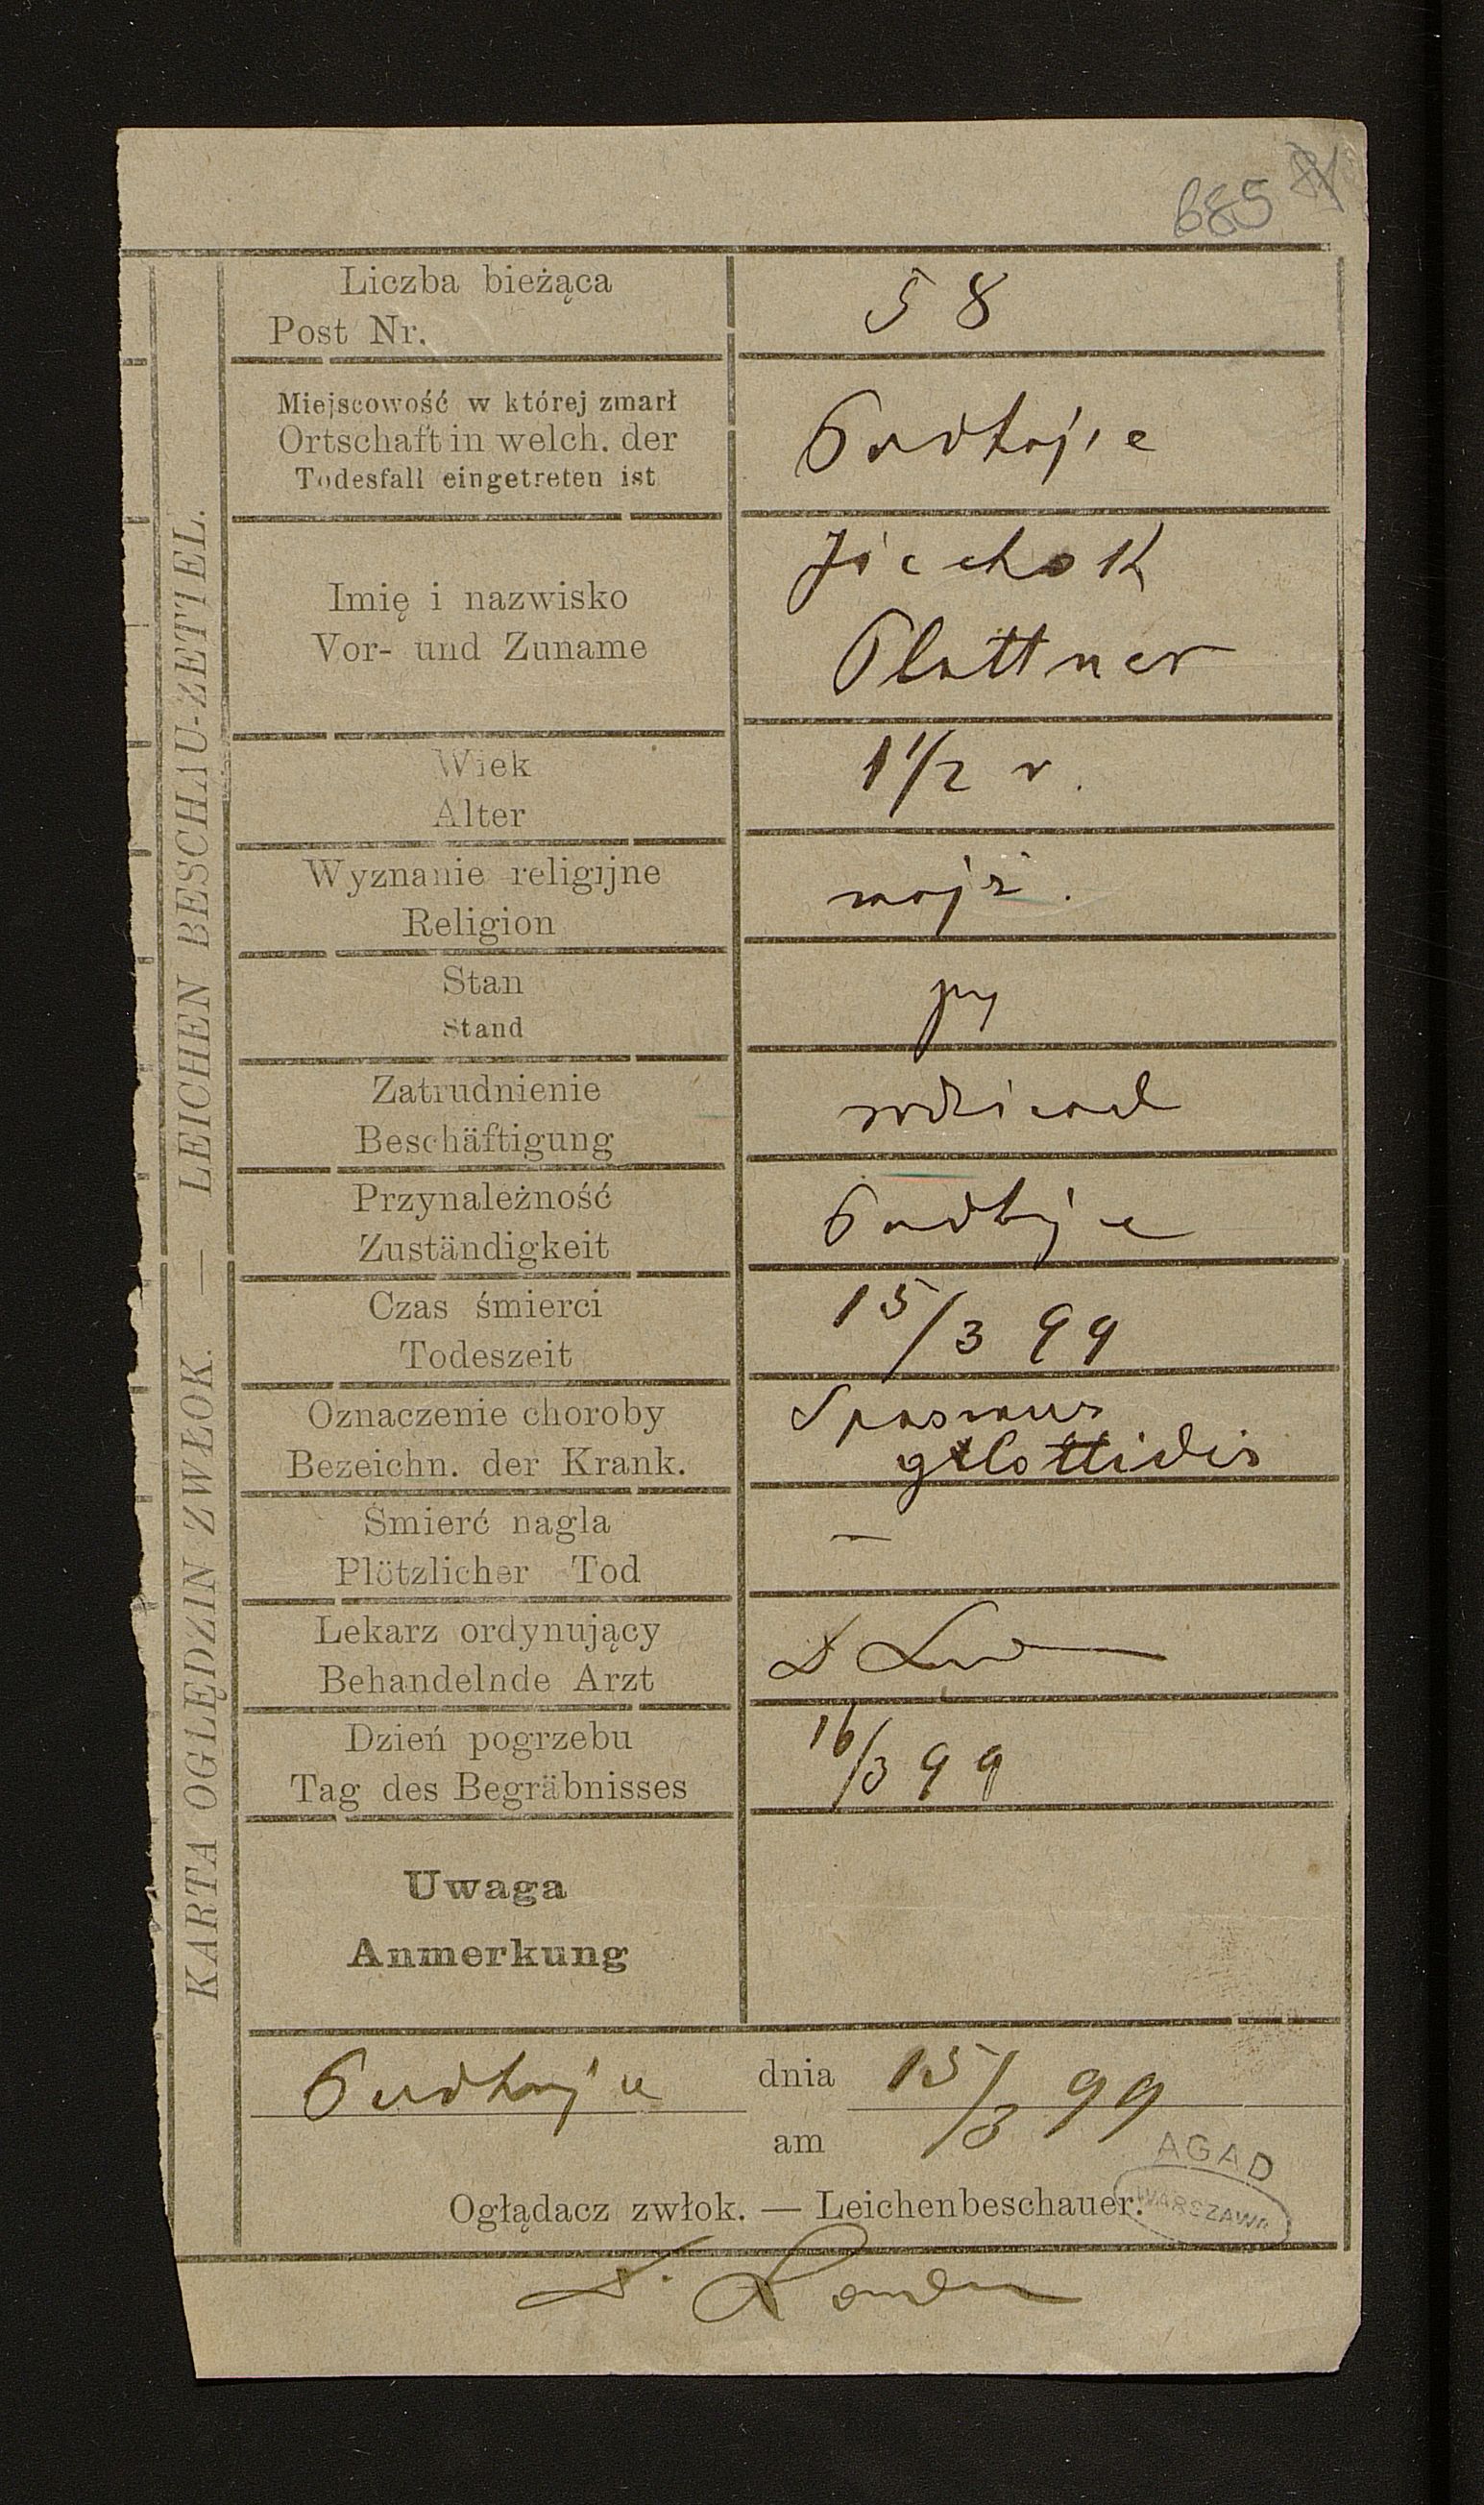 685
Liczba bieżąca
Post Nr.
58
Miejscowość w której zmarł
Ortschaft in welch. der
Todesfall eingetreten ist
Podhajce
Imię i nazwisko
Vor- und Zuname
Jicchok
Plattner
Wiek
Alter
1 1/2 r.
Wyznanie religijne
Religion
mojż.
Stan
Stand
Zatrudnienie
Beschäftigung
Przynależność
Zuständigkeit
Podhajce
Czas śmierci
Todeszeit
15/3 99
Oznaczenie choroby
Bezeichn. der Krank.
Spasmus
glottidis
Śmierć nagla
Plötzlicher Tod
—
Lekarz ordynujący
Behandelnde Arzt
Dzień pogrzebu
Tag des Begräbnisses
16/3 99
Uwaga
Anmerkung
Podhajce dnia 15/3 99
am
Oglądacz zwłok. — Leichenbeschauer.
AGAD
WARSZAWA
KARTA OGLĘDZIN ZWŁOK. — LEICHEN BESCHAU-ZETTEL.